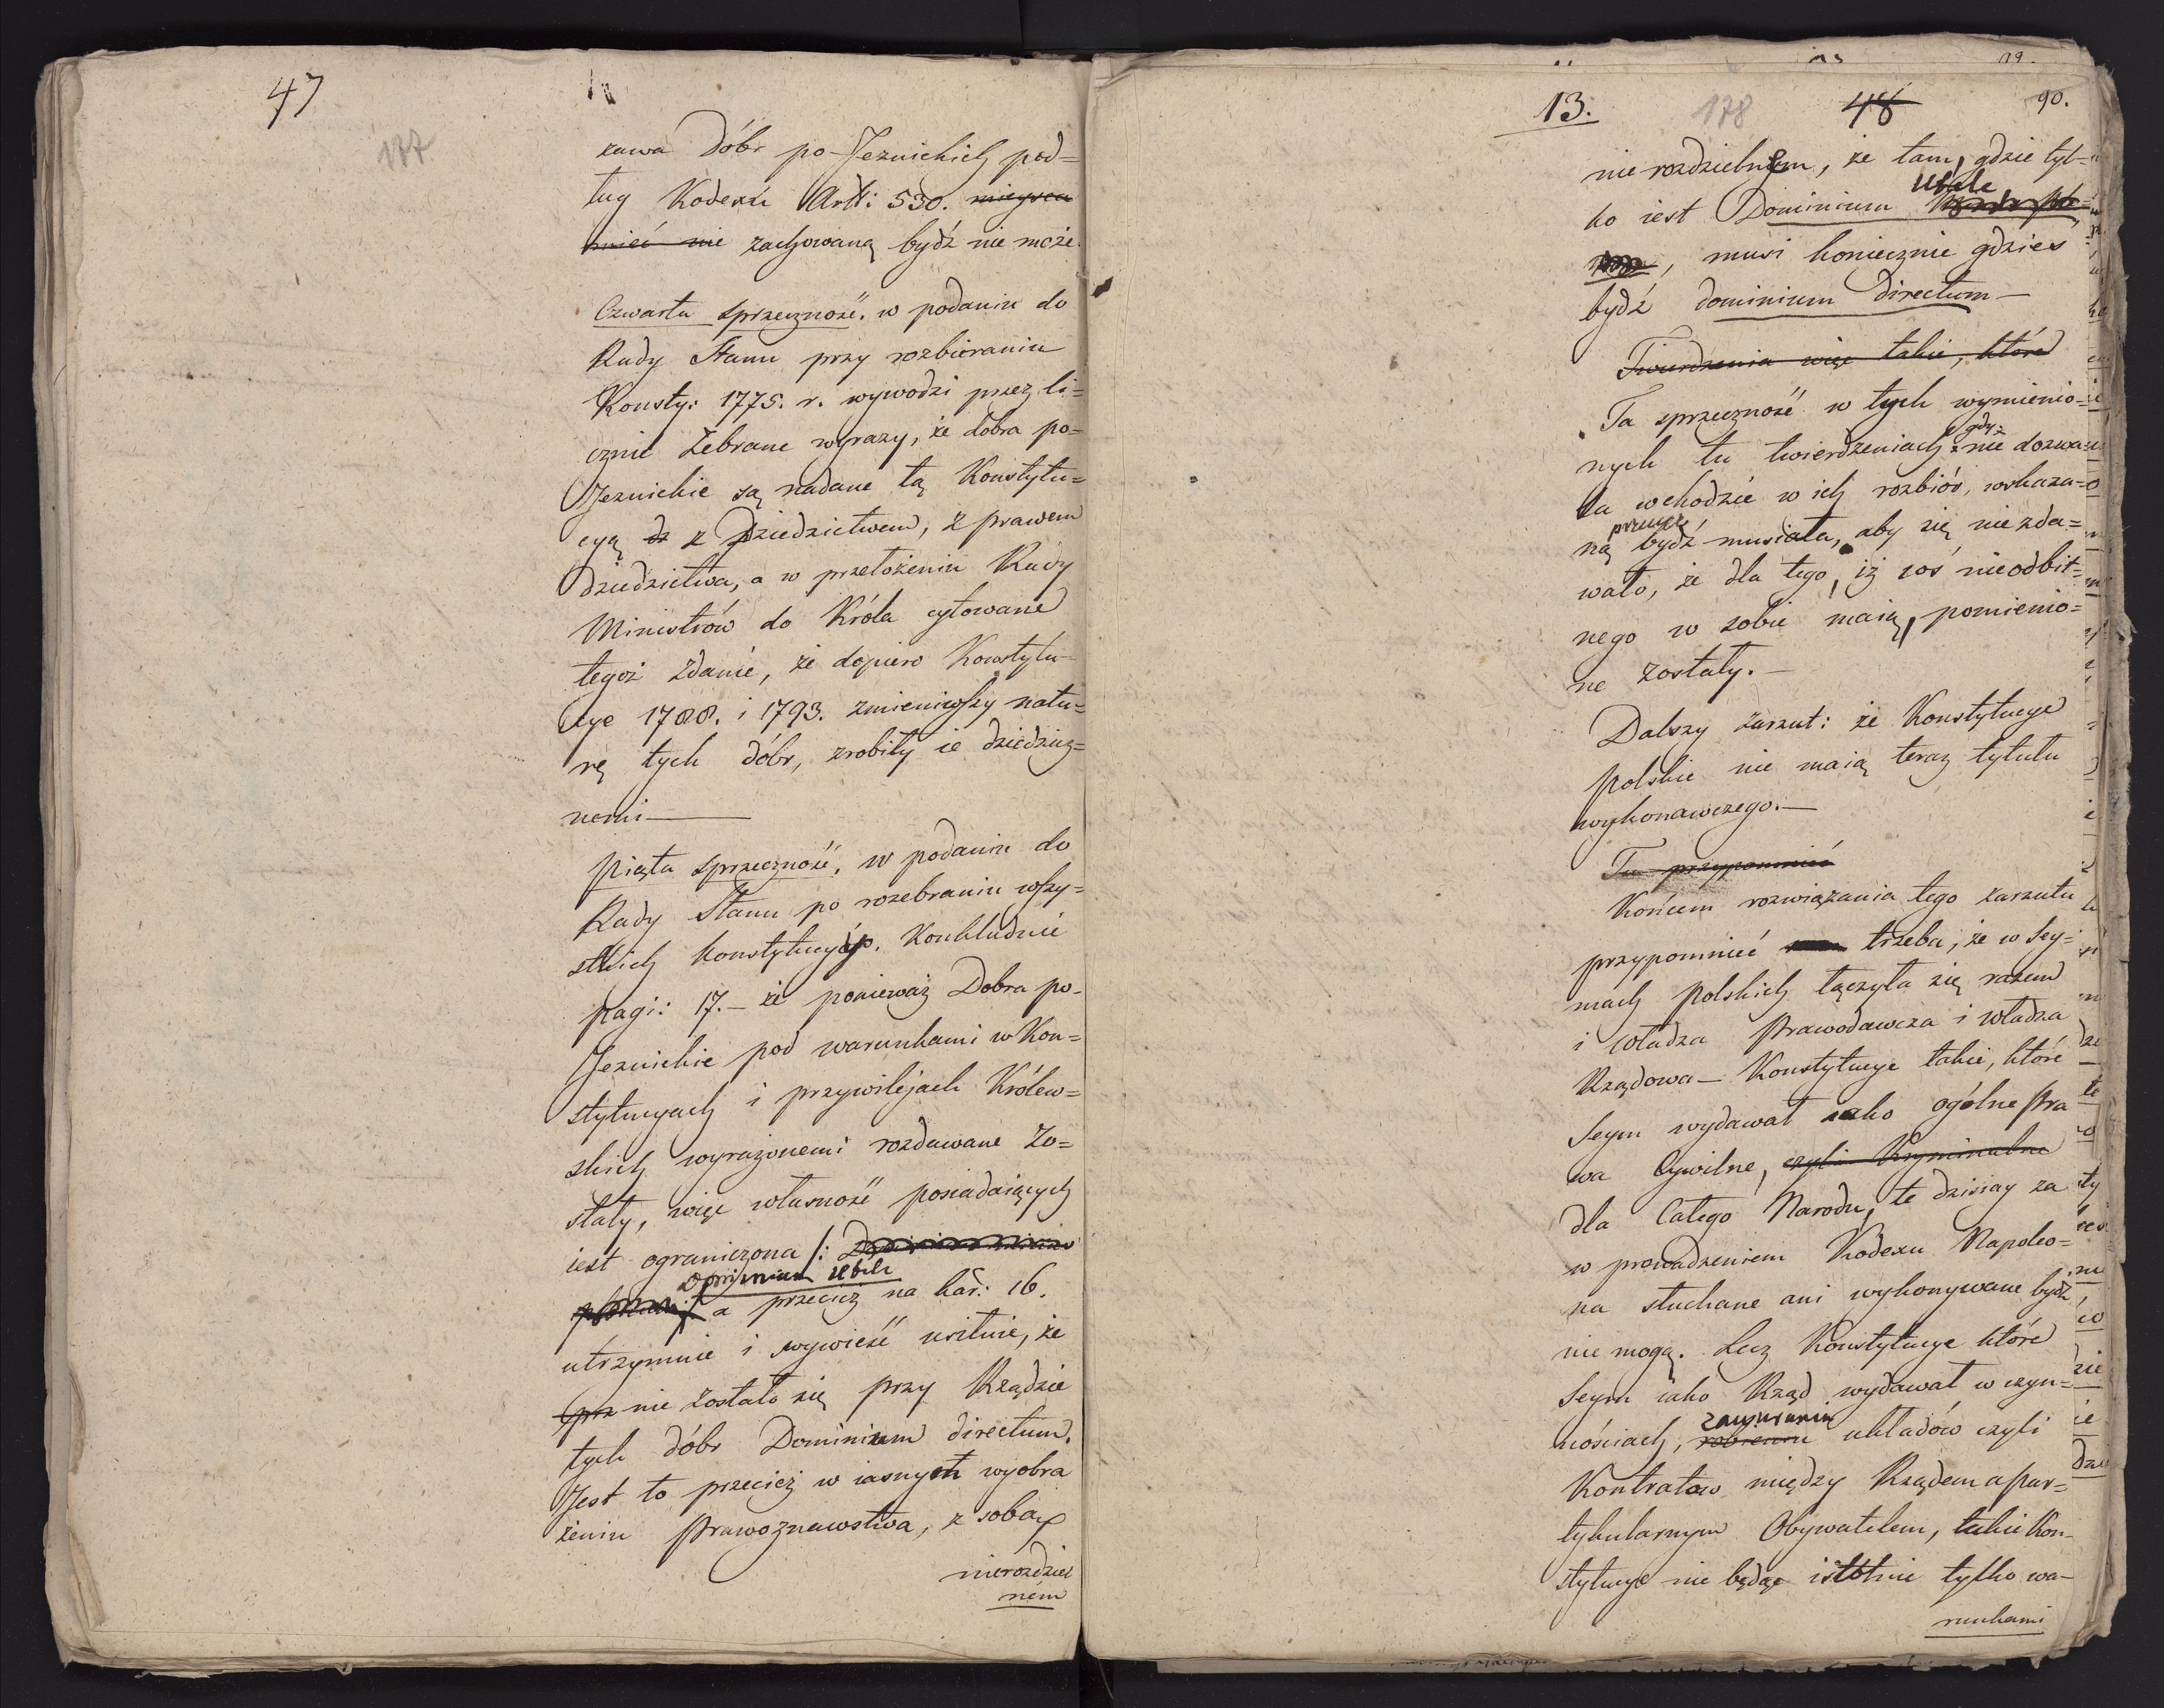 47
177
zawa Dóbr po-Jezuickich pod=
ług Kodexu Artt: 530. mieysca
mieć nie zachowaną bydź nie może.
Czwarta sprzeczność. w podaniu do
Rady Stanu przy rozbieraniu
Konsty: 1775. r. wywodzi przez li=
cznie zebrane wyrazy, że dobra po=
Jezuickie są nadane tą Konstytu=
cyą dz z Dziedzictwem, z prawem
dziedzictwa, a w przełożeniu Rady
Ministrów do Króla cytowane
tegoż zdanie, że dopiero Konstytu=
cye 1788. i 1793. zmieniwszy natu=
rę tych dóbr, zrobiły ie dziedzicz=
nemi —
Piąta sprzeczność, w podaniu do
Rady Stanu po rozebraniu wszy=
stkich konstytucyóp. Konkluduie
pagi: 17. – że ponieważ Dobra po-
Jezuickie pod warunkami w Kon=
stytucyach i przywilejach Królew=
skich wyrażonemi rozdawane zo=
stały, więc własność posiadaiących
iest ograniczona /:
Dominium Utile
a przecież na kar: 16.
utrzymuie i wywieść usiłuie, że
prz nie zostało się przy Rządzie
tych dóbr Dominium directum.
Jest to przecież w iasnych wyobra
żeniu Prawoznawstwa, z sobą
nierozdziel
ném
13.
178
48
90.
nierozdzielném, że tam, gdzie tyl=
Utile
ko iest Dominium
, musi koniecznie gdzieś
bydź dominium directum —
Twierdzenia więc takie, które
Ta sprzeczność w tych wymienio=
gdy
nych tu twierdzeniach nie dozwa=
la wchodzić w ich rozbiór, wskaza=
przecież
ną bydź musiała, aby się nie zda=
wało, że dla tego, iż coś nieodbit=
nego w sobie maią, pomienio=
ne zostały. —
Dalszy zarzut: że Konstytucye
polskie nie maią teraz tytułu
wykonawczego. —
Tu przypomnieć
Końcem rozwiązania tego zarzutu
przypomnieć trzeba, że w Sey=
mach Polskich łączyła się razem
i władza Prawodawcza i władza
Rządowa — Konstytucye takie, które
Seym wydawał iako ogólne Pra
wa Cywilne, czyli Kryminalne
dla Całego Narodu, te dzisiay za
w prowadzeniem Kodexu Napoleo=
na słuchane ani wykonywane bydź
nie mogą. Lecz Konstytucye które
Seym iako Rząd wydawał w czyn=
zawierania
nościach, robienia układów czyli
Kontratow między Rządem a par=
tykularnym Obywatelem, takie Kon-
stytucye nie będąc istotnie tylko wa-
runkami